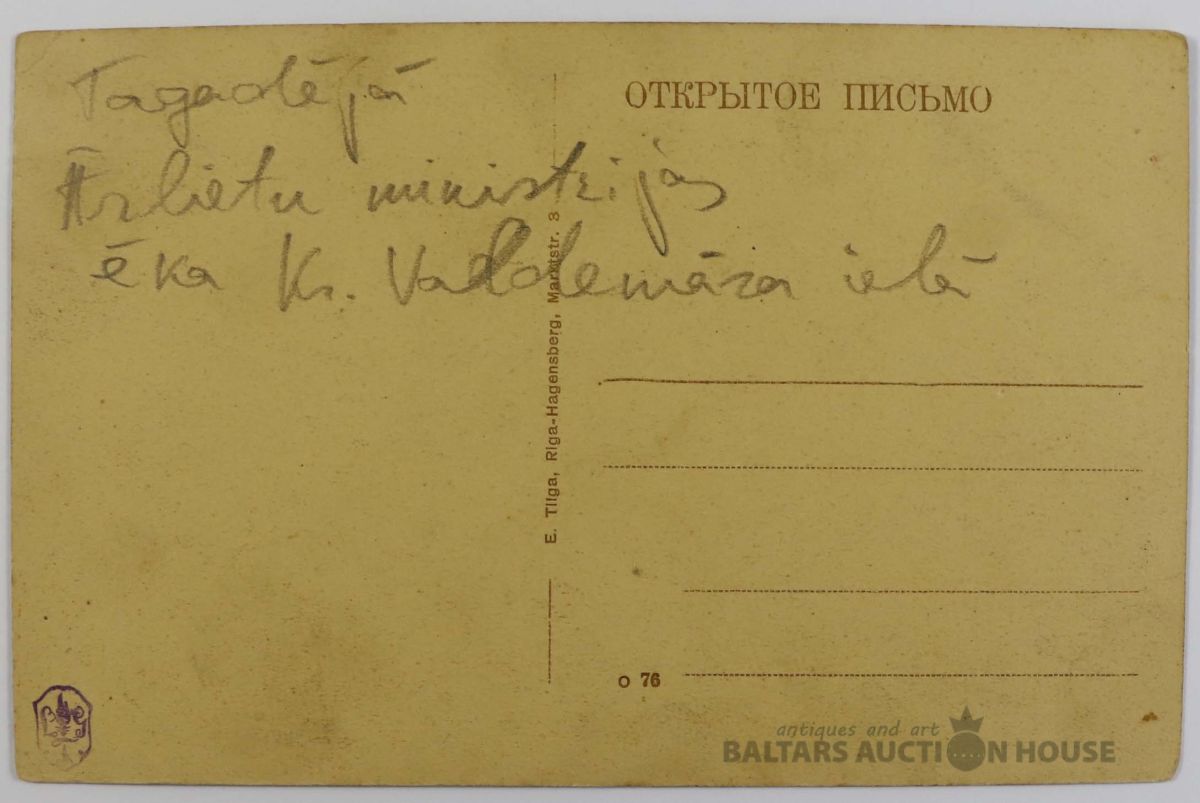 Tagadējā
Ārlietu ministrijas
ēka Kr. Valdemāra ielā
ОТКРЫТОЕ ПИСЬМО
E. Tilga, Riga-Hagensberg, Marktstr. 3
O 76
antiques and art
BALTARS AUCTION HOUSE